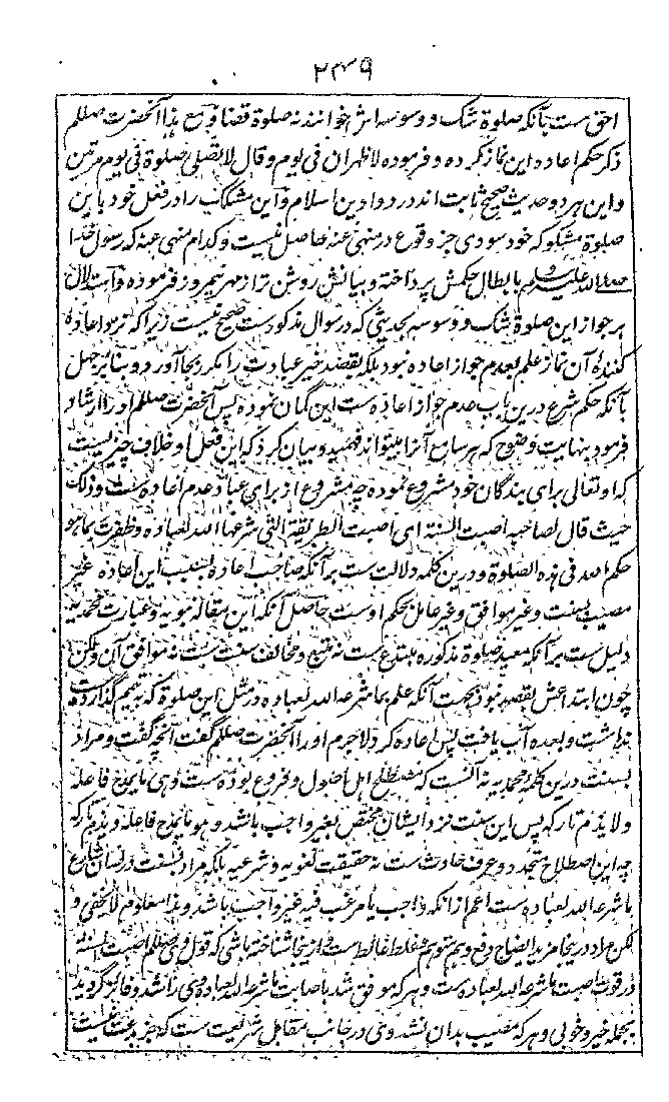 ۲۳۴۹
احق ست بآنکه صلوة شک و وسوسه اش خوانند نه صلوة قضا و مع هذا آنحضرت صللم
ذکر حکم اعاده این نماز کرده و فرموده لا ظهران فی یوم و قال لا تصلی صلوة فی یوم مرتین
و این هر دو حدیث صحیح ثابت اند در دواوین اسلام و این مشکک را در فعل خود باین
صلوة مشکوکه خود سودی جز وقوع در منهی عنه حاصل نیست و کدام منهی عنه که رسول خدا
صلی الله علیه وسلم بابطال حکمش پرداخته و بیانش روشن تر از مهر نیمروز فرموده و استدلال
بر جواز این صلوة شک و وسوسه بحدیثی که در سوال مذکورست صحیح نیست زیرا که نزد اعاده
کنندهٔ آن نماز علم بعدم جواز اعاده نبود بلکه بقصد خیر عبادت را مکرر بجا آورد و بنا بر جهل
بآنکه حکم شرع درین باب عدم جواز اعاده ست این گمان نموده پس آنحضرت صللم او را ارشاد
فرمود بنهایت وضوح که هر سامع آنرا میتواند فهمید و بیان کرد که این فعل او خلاف چیزیست
که او تعالی برای بندگان خود مشروع نموده چه مشروع از برای عباد عدم اعاده ست و ذلک
حیث قال لصاحبه اصبت السنة ای اصبت الطریقة التی شرعها الله لعباده و ظفرت بما هو
حکم الله فی هذه الصلوة و درین کلمه دلالت ست بر آنکه صاحب اعاده بسبب این اعاده غیر
مصیب بسنت و غیر موافق و غیر عامل بحکم اوست حاصل آنکه این مقاله نبویه و عبارت محمدیه
دلیل ست بر آنکه معید صلوة مذکوره مبتدع ست نه متبع و مخالف سنت ست نه موافق آن ولیکن
چون ابتداعش بقصد نبود بجهت آنکه علم بما شرعه الله لعباده در مثل این صلوة که بتیمم گذارده ست
نداشت و بعده آب یافت پس اعاده کرد لاجرم او را آنحضرت صللم گفت آنچه گفت و مراد
بسنت درین کلمهٔ محمدیه نه آنست که مصطلح اهل اصول و فروع بوده ست و هی ما یمدح فاعله
و لا یذم تارکه پس این سنت نزد ایشان مختص بغیر واجب باشد و هو ما یمدح فاعله و یذم تارکه
چه این اصطلاح متجدد و عرف حادث ست نه حقیقت لغویه و شرعیه بلکه مراد بسنت در لسان شارع
ما شرعه الله لعباده ست اعم از آنکه واجب یا مرغب فیه غیر واجب باشد و هذا معلوم لا یخفی و
لکن مراد درینجا مزید ایضاح و رفع وهم متوهم و غلط غالط ست و ازینجا شناخته باشی که قول وی صللم اصبت السنة
در قوت اصبت ما شرعه الله لعباده ست و هر که موفق شد باصابت ما شرعه الله لعباده وی راشد و فائز گردید
بجمله خیر و خوبی و هر که مصیب بدان نشد وی در جانب مقابل شریعت ست که جز بدعت نیست